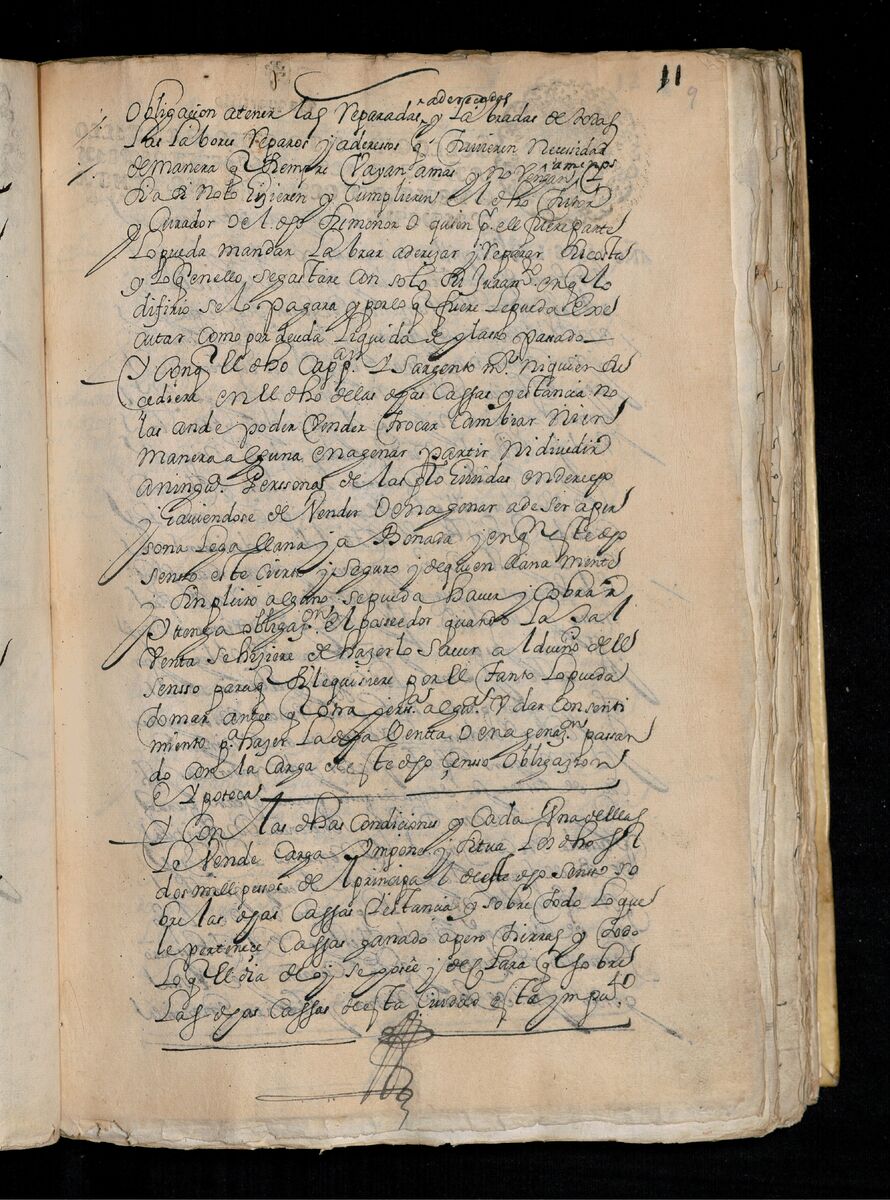 11
9
Obligaçion a tener las Reparadas aderecadas y Labradas de todas
las labores Reparos y aderesos q tuvieren necesidad
de manera q siempre Vayan a mas y no Vengan a menos
Y a si no lo hizieren y Cumplieren el dho tutor
y Curador del dho menor o quien p. el fuere parte
lo pueda mandar labrar aderezar y Reparar a su costa
y lo q en ello se gastare con solo su juram.to en q lo
difirio se lo pagara y por lo q fuere le pueda exe
cutar como por deuda liquida de plasso passado
Y Con q el dho Capp.an y Sargento m.or ni quien su
cediere en el dho de las dhas Cassas y estancia no
las ande poder Vender trocar Cambiar ni en
manera alguna enagenar partir ni dividir
a ningu.a Perssonas de las prohividas en derecho
y haviendose de Vender o enagenar a de ser a per
sona lega llana y abonada y en q.n este dho
sensso este cierto y seguro y de quien llana mente
y sin pleito alguno se pueda haver y cobrar
y tenga obligaz.on el posseedor quando la tal
Venta se hiziere de hazerlo saver al dueño del
sensso para q si le quisiere por el tanto lo pueda
tomar antes q otra pers.a alg.a y dar consenti
miento p.a hazer la dha Venta o enagenaz.on passan
do con la Carga deste dho Çensso Obligazion
e Ypoteca
Y Con las dhas Condiciones y Cada Una dellas
le Vende Carga Ympone y Situa los dhos
dos mill pessos de principal deste dho sensso so
bre las dhas Cassas Estancia y sobre todo lo que
le pertenece Cassas ganado apero tierras y todo
lo q el dia de oy se posee y declara q sobre
las dhas Cassas desta Ciudad esta ympu.to